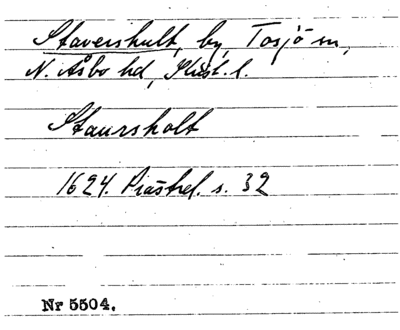 Stavershult, by, Tosjö sn,
N. Åsbo hd, Krist. l.
Staursholt
1624. Prästrel. s. 32
Nr 5504.